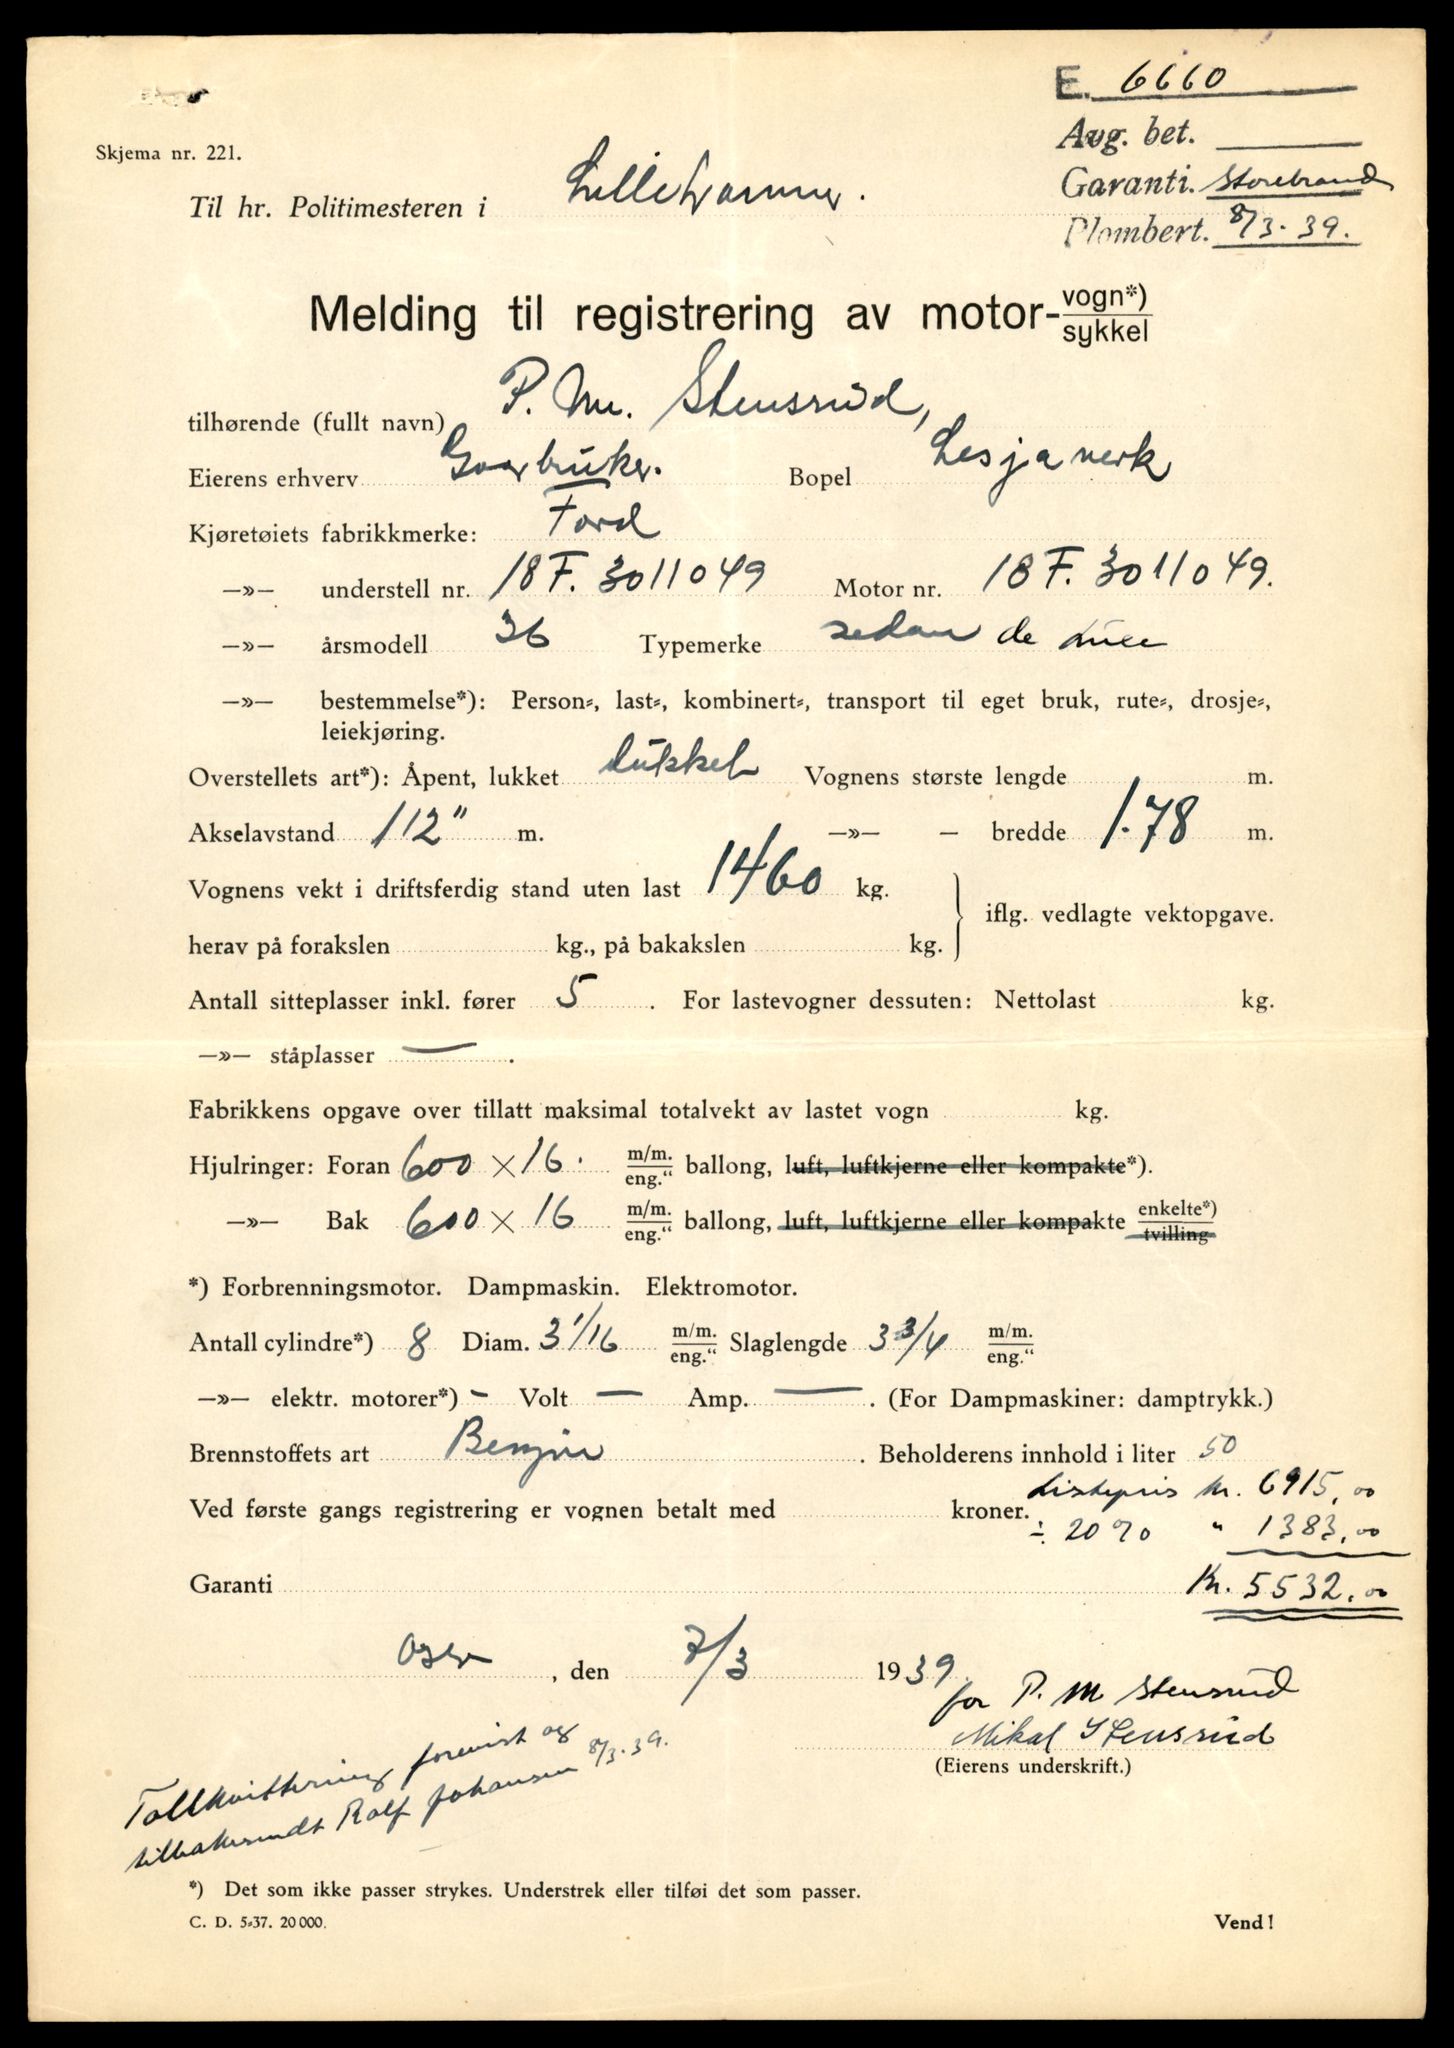 E. 6660
Avg. bet.
Skjema nr. 221.
Garanti. Storebrand
Til hr. Politimesteren i Lillehammer.
Plombert. 8/3. 39.
Melding til registrering av motor- vogn*) / sykkel
tilhørende (fullt navn) P. M. Stensrud,
Eierens erhverv Gaarbruker. Bopel Lesjaverk
Kjøretøiets fabrikkmerke: Ford
—»— understell nr. 18 F. 3011049 Motor nr. 18 F. 3011049.
—»— årsmodell 36 Typemerke sedan de luxe
—»— bestemmelse*): Person-, last-, kombinert-, transport til eget bruk, rute-, drosje-,
leiekjøring.
Overstellets art*): Åpent, lukket lukket Vognens største lengde m.
Akselavstand 112" m. —»— — bredde 1.78 m.
Vognens vekt i driftsferdig stand uten last 1460 kg.
iflg. vedlagte vektopgave.
herav på forakslen kg., på bakakslen kg.
Antall sitteplasser inkl. fører 5 . For lastevogner dessuten: Nettolast kg.
—»— ståplasser — .
Fabrikkens opgave over tillatt maksimal totalvekt av lastet vogn kg.
Hjulringer: Foran 600 × 16. m/m. / eng." ballong, luft, luftkjerne eller kompakte*).
—»— Bak 600 × 16 m/m. / eng." ballong, luft, luftkjerne eller kompakte enkelte*) / tvilling
*) Forbrenningsmotor. Dampmaskin. Elektromotor.
Antall cylindre*) 8 Diam. 3 1/16 m/m. / eng." Slaglengde 3 3/4 m/m. / eng."
—»— elektr. motorer*) — Volt — Amp. — . (For Dampmaskiner: damptrykk.)
Brennstoffets art Benzin . Beholderens innhold i liter 50
Ved første gangs registrering er vognen betalt med kroner. Listepris kr. 6915,00
÷ 20 % " 1383,00
Garanti Kr. 5532,00
Oslo , den 7/3 1939.
for P. M Stensrud
Mikal Stensrud
(Eierens underskrift.)
Tollkvittering forevist og
tilbakesendt Rolf Johansen 8/3. 39.
*) Det som ikke passer strykes. Understrek eller tilføi det som passer.
C. D. 5-37. 20 000. Vend!